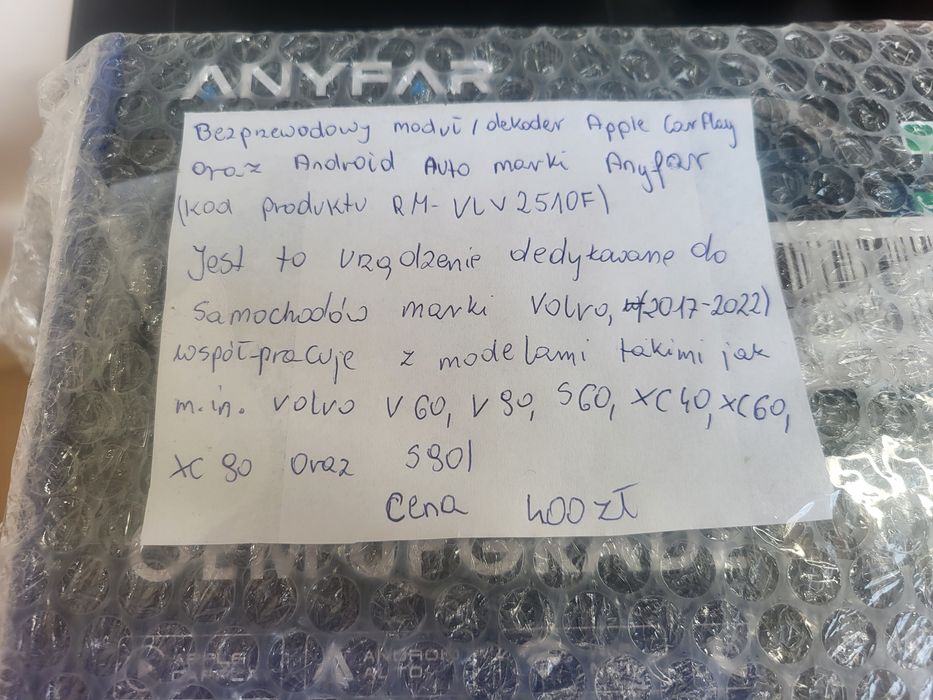 ANYFAR
Bezprzewodowy moduł / dekoder Apple CarPlay
oraz Android Auto marki Anyfar
(kod produktu RM-VLV2510F)
Jest to urządzenie dedykowane do
samochodów marki Volvo, (2017-2022)
współ-pracuje z modelami takimi jak
m.in. Volvo V60, V90, S60, XC40, XC60,
XC90 oraz S90)
Cena 400 zł
OEM UPGRADE
APPLE ANDROID
CARPLAY AUTO